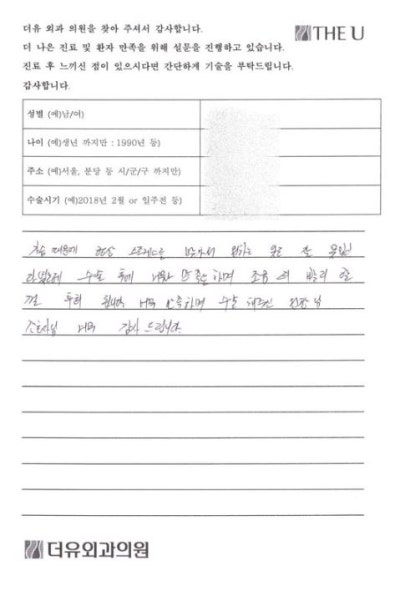 더유 외과 의원을 찾아 주셔서 감사합니다.
더 나은 진료 및 환자 만족을 위해 설문을 진행하고 있습니다.
진료 후 느끼신 점이 있으시다면 간단하게 기술을 부탁드립니다.
감사합니다.
THE U
성별 (예)남/여)
나이 (예)생년 까지만 : 1990년 등)
주소 (예)서울, 분당 등 시/군/구 까지만)
수술시기 (예)2018년 2월 or 일주전 등)
때문에 항상 스트레스를 받아서 원하는 옷도 잘 못입
수술 후에 너무 만족하며 조금 더 빨리 할
껄 후회 너무 만족하며 수술 해주신 원장님
너무 감사 드립니다.
더유외과의원